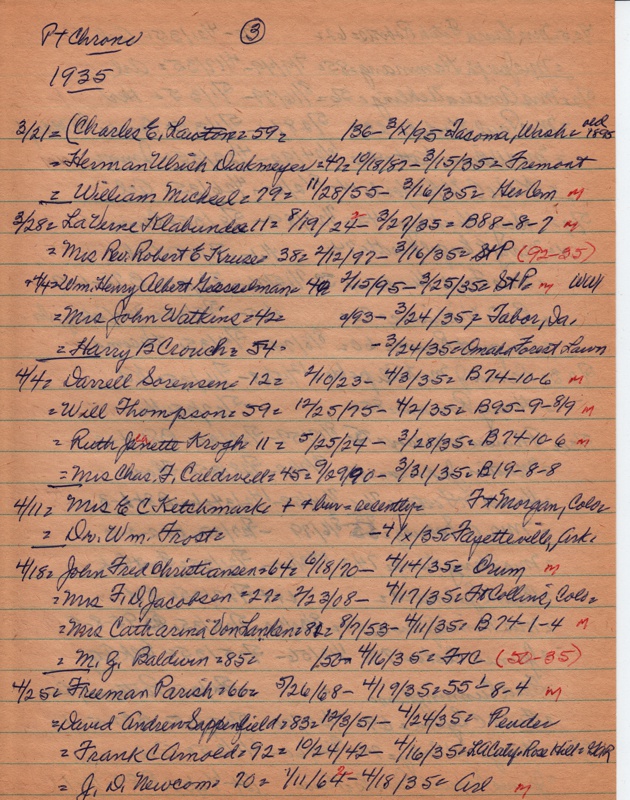 Pt Chrono ③
1935
3/21 = (Charles E. Lawton = 59 = 1/36 - 3/x/95 = Tacoma, Wash = old 1895
= Herman Ulrich Diskmeyer = 47 = 10/18/87 - 3/15/35 = Fremont
= William Mickeel = 79 = 11/28/55 - 3/16/35 = Her Cem m
3/28 = LaVerne Klabunde = 11 = 8/19/24 - 3/27/35 = B88-8-7 m
= Mrs Rev. Robert E Kruse = 38 = 2/12/97 - 3/16/35 = St P (92-35)
= 4/4 = Wm. Henry Albert Gosselman = 40 2/15/95 - 3/25/35 = St P = m WWI
= Mrs John Watkins = 42 = /93 - 3/24/35 = Tabor, Ia,
= Harry B Crouch = 54 = - 3/24/35 = Omaha, Forest Lawn
4/4 = Darrell Sorensen = 12 = 2/10/23 - 4/3/35 = B74-10-6 m
= Will Thompson = 59 = 12/25/75 - 4/2/35 = B95-9-8/9 m
= Ruth Jenette Krogh 11 = 5/25/24 - 3/28/35 = B74-10-6 m
= Mrs Chas. F. Caldwell = 45 = 9/29/90 - 3/31/35 = B19-8-8
4/11 = Mrs E C Ketchmark = + + bur = recently = Ft Morgan, Colo =
= Dr. Wm. Frost = - 4/x/35 = Fayetteville, Ark =
4/18 = John Fred Christiansen = 64 = 6/18/70 - 4/14/35 = Orum m
= Mrs F. D. Jacobsen = 27 = 2/23/08 - 4/17/35 = Ft Collins, Colo =
= Mrs Catharina Von Lanken = 81 = 8/7/53 - 4/11/35 = B74-1-4 m
= M. G. Baldwin = 85 = /50 - 4/16/35 = FtC (50-35)
4/25 = Freeman Parish = 66 = 5/26/68 - 4/19/35 = 55 1-8-4 m
= David Andrew Sappenfield = 83 = 12/3/51 - 4/24/35 = Pender
= Frank C Arnold = 92 = 10/24/42 - 4/16/35 = LA City = Rose Hill =
= J. D. Newcom = 70 = 1/11/64 - 4/18/35 = Arl m